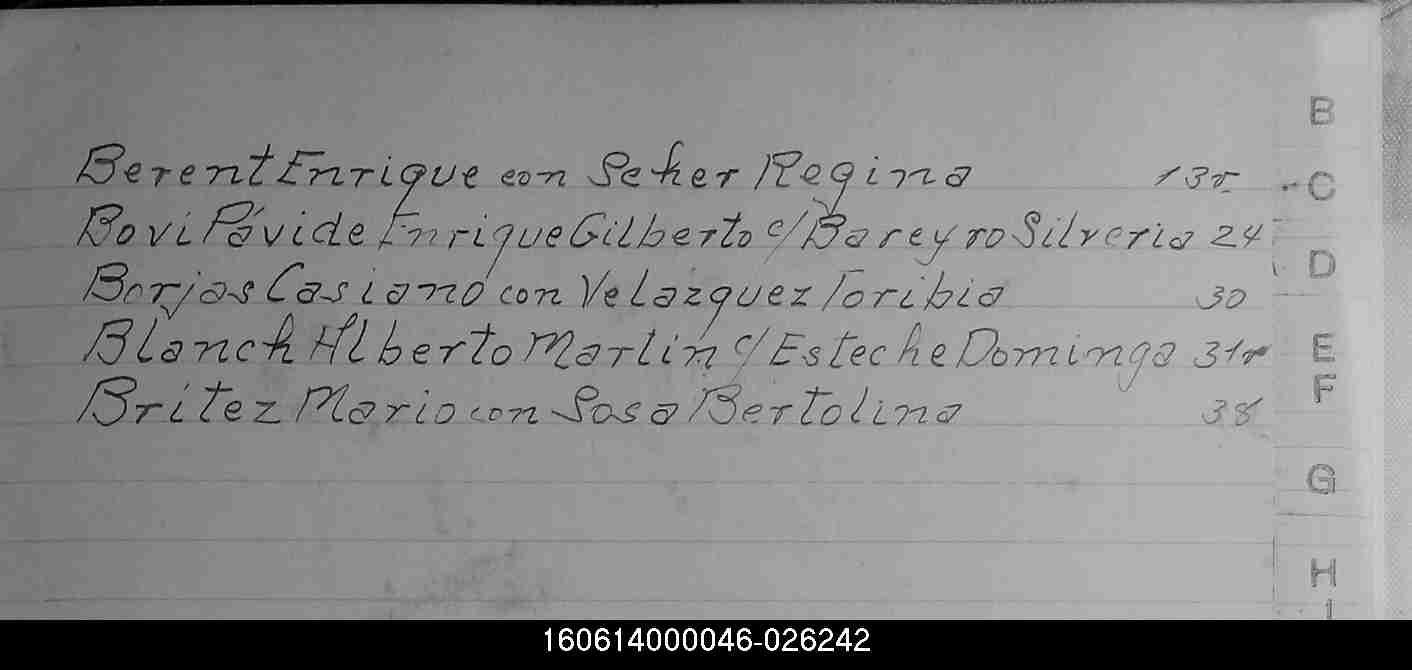 Berent Enrique con Seher Regina 13v
Bovi Pávide Enrique Gilberto c/ Bareyro Silveria 24
Borjas Casiano con Velazquez Toribia 30
Blanch Alberto Martin c/ Esteche Dominga 31v
Britez Mario con Sosa Bertolina 38
B
C
D
E
F
G
H
I
160614000046-026242